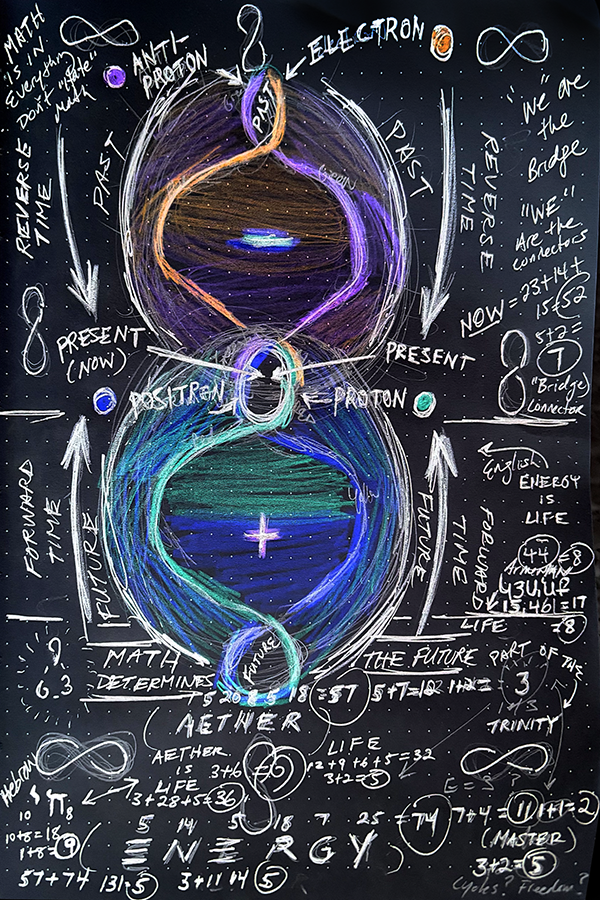 MATH
IS IN
Everything
Don't "hate"
Math
ANTI-
PROTON
ELECTRON
PAST
PAST
PAST
REVERSE
TIME
REVERSE
TIME
"We" are
the
Bridge
"WE"!
Are the
connectors
NOW = 23+14+
15=52
5+2=
7
"(Bridge)
Connector
PRESENT
(NOW)
PRESENT
POSITRON
PROTON
FORWARD
TIME
FUTURE
FUTURE
TIME
FORWARD
English
ENERGY
IS
LIFE
44=8
15.461=17
LIFE =8
FUTURE
MATH
DETERMINES
THE FUTURE
PART OF THE
3
TRINITY
6.3
5 20 8 5 18 =57 5+7=12 1+2=
AETHER
AETHER
IS
LIFE
3+6=9
3+28+5=36
LIFE
12+9+6+5=32
3+2=5
E=5?
Hebrew
10 8
10+8=18
1+8=9
5 14 5 18 7 25 =74 7+4=11 1+1=2
ENERGY
(MASTER)
3+2=5
57+74 131=5 3+11 14 5
Cycles? Freedom?